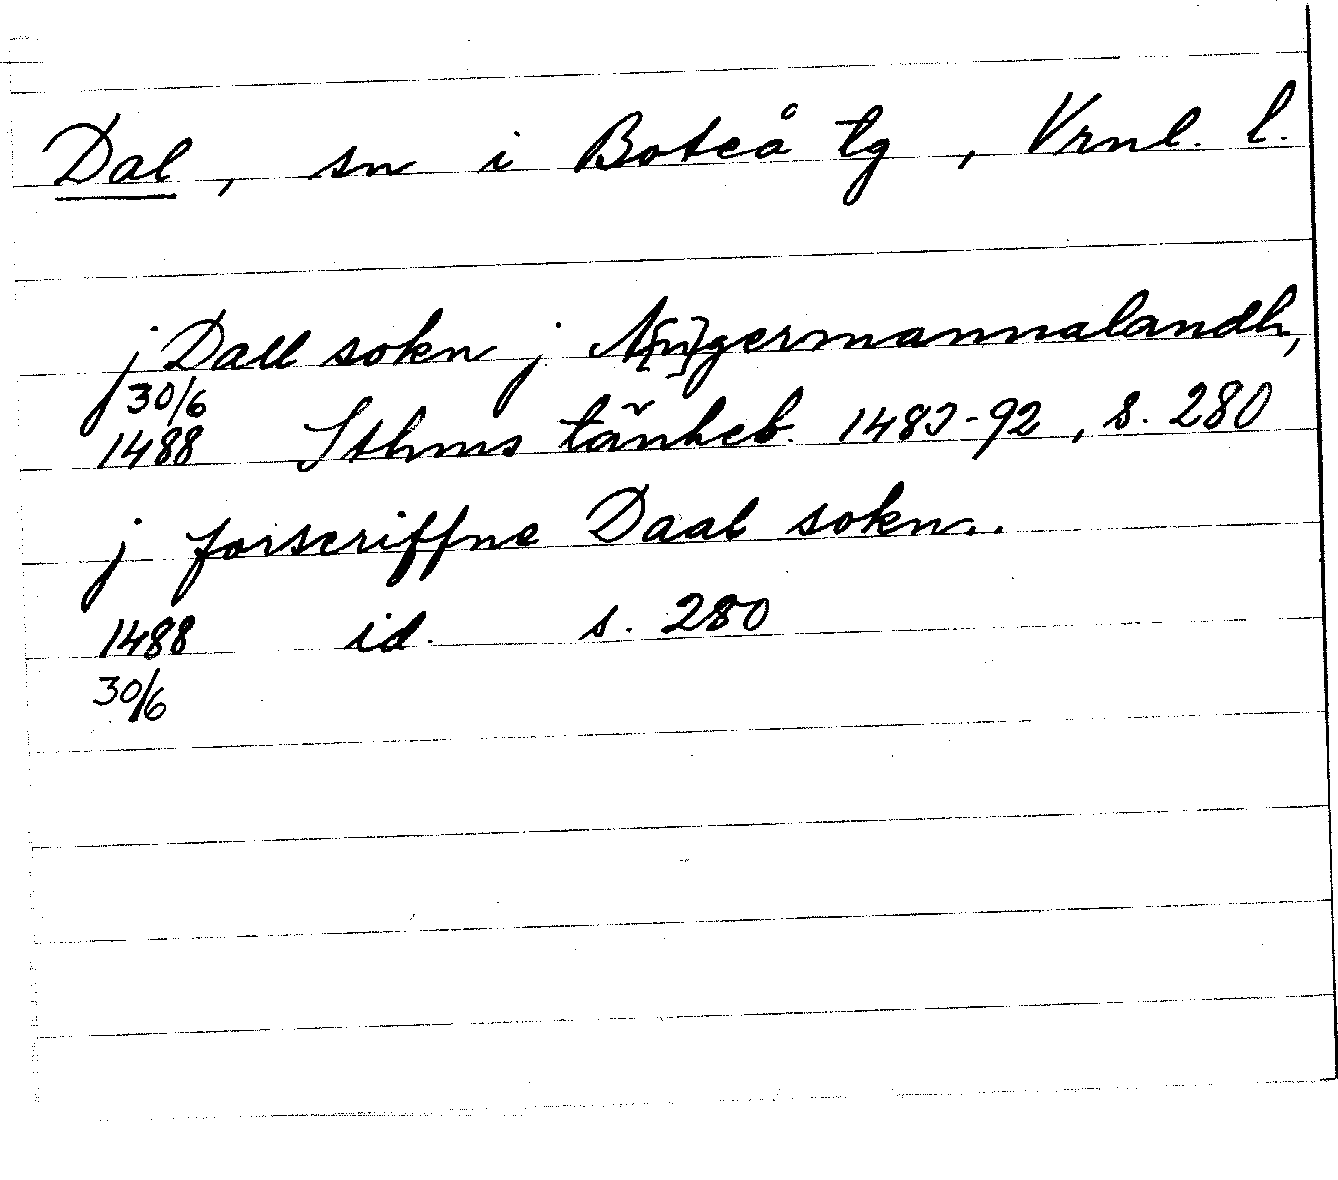 Dal, sn i Boteå tg, Vrnl. l.
j Dall sokn j A[n]germannalandh,
30/6
1488 Sthms tänkeb. 1483-92, s. 280
j forscriffne Daal sokn..
1488 id. s. 280
30/6